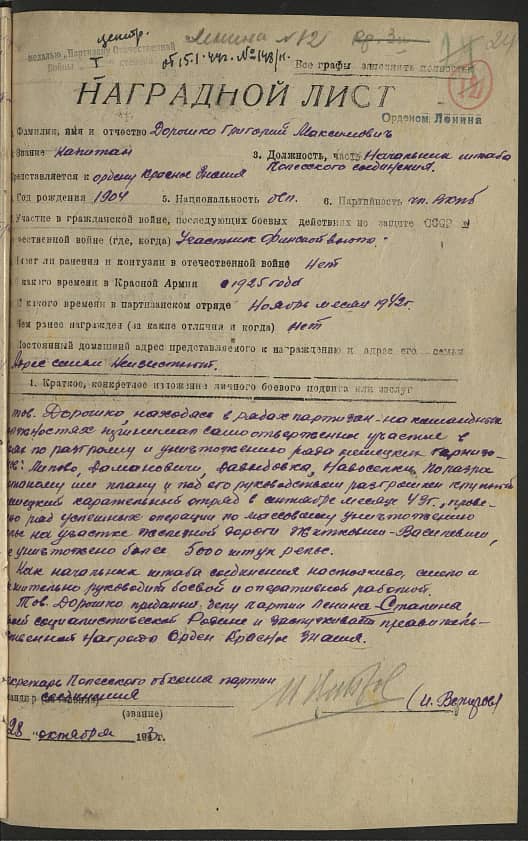 центр.
Ленина №12
24
медалью „Партизану Отечественной
Войны I степени
от 15.1.44г. №143/н.
Все графы заполнять полностью
НАГРАДНОЙ ЛИСТ
Орденом Ленина
Фамилия, имя и отчество Дорошко Григорий Максимович
Звание Капитан
3. Должность, часть Начальник штаба
Полесского соединения.
редставляется к ордену Красное Знамя
Год рождения 1904 5. Национальность бел. 6. Партийность чл. ВКПб
Участие в гражданской войне, последующих боевых действиях по защите СССР и
чественной войне (где, когда) Участник Финской войны.
Имеет ли ранения и контузии в отечественной войне Нет
какого времени в Красной Армии с 1925 года
С какого времени в партизанском отряде Ноябрь месяц 1942г.
Чем ранее награжден (за какие отличия и когда) Нет
Постоянный домашний адрес представляемого к награждению и адрес его семьи
Адрес семьи Неизвестный.
1. Краткое, конкретное изложение личного боевого подвига или заслуг
тов. Дорошко, находясь в рядах партизан - на командных
должностях принимал самоотверженное участие в
по разгрому и уничтожению ряда немецких гарнизо-
нов: Липово, Домановичи, Давыдовка, Новоселки,
им плану и под его руководством разгромлен крупный
немецкий карательный отряд в сентябре месяце 43г.,
ряд успешных операций по массовому уничтожению
на участке железной дороги Житковичи-Василевичи,
уничтожено более 5000 штук рельс.
Как начальник штаба соединения настойчиво, смело и
решительно руководит боевой и оперативной работой.
Тов. Дорошко преданный делу партии Ленина-Сталина
социалистической Родине и заслуживает правитель-
ственной награды Орден Красное Знамя.
Секретарь Полесского обкома партии
командир соединения
(И. Ветров)
(звание)
28 " октября 1943г.